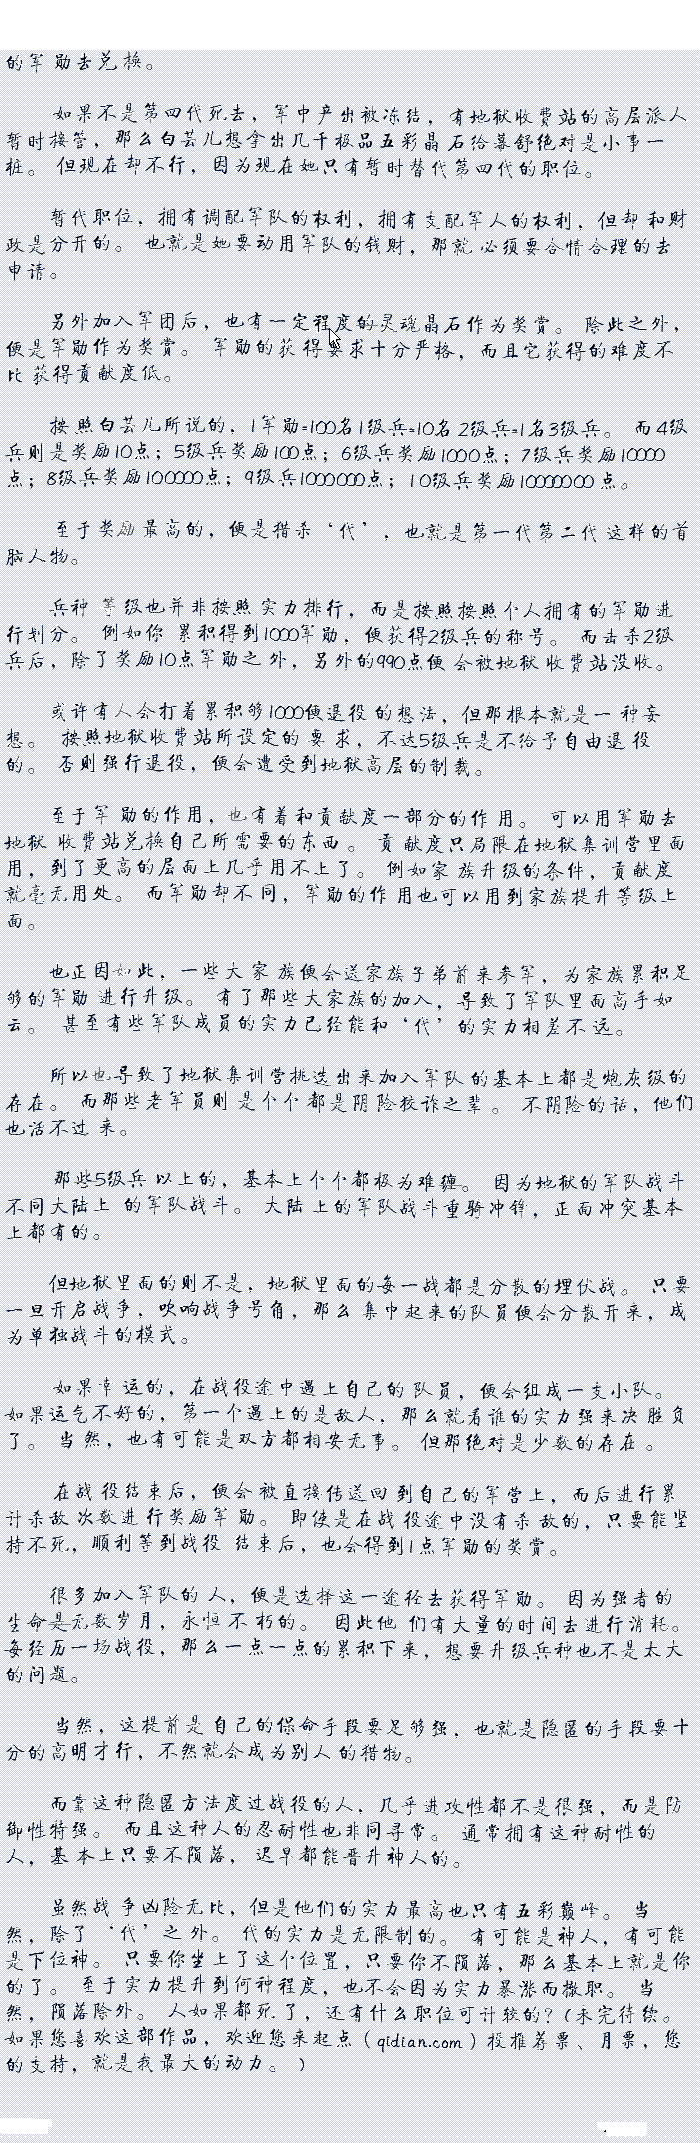 的军勋去兑换。
如果不是第四代死去，军中产出被冻结，有地狱收费站的高层派人
暂时接管，那么白芸儿想拿出几千极品五彩晶石给慕舒绝对是小事一
桩。但现在却不行，因为现在她只有暂时替代第四代的职位。
暂代职位，拥有调配军队的权利，拥有支配军人的权利，但却和财
政是分开的。也就是她要动用军队的钱财，那就必须要合情合理的去
申请。
另外加入军团后，也有一定程度的灵魂晶石作为奖赏。除此之外，
便是军勋作为奖赏。军勋的获得要求十分严格，而且它获得的难度不
比获得贡献度低。
按照白芸儿所说的，1军勋=100名1级兵=10名2级兵=1名3级兵。而4级
兵则是奖励10点；5级兵奖励100点；6级兵奖励1000点；7级兵奖励10000
点；8级兵奖励100000点；9级兵1000000点；10级兵奖励10000000点。
至于奖励最高的，便是猎杀‘代’，也就是第一代第二代这样的首
脑人物。
兵种等级也并非按照实力排行，而是按照按照个人拥有的军勋进
行划分。例如你累积得到1000军勋，便获得2级兵的称号。而击杀2级
兵后，除了奖励10点军勋之外，另外的990点便会被地狱收费站没收。
或许有人会打着累积够1000便退役的想法，但那根本就是一种妄
想。按照地狱收费站所设定的要求，不达5级兵是不给予自由退役
的。否则强行退役，便会遭受到地狱高层的制裁。
至于军勋的作用，也有着和贡献度一部分的作用。可以用军勋去
地狱收费站兑换自己所需要的东西。贡献度只局限在地狱集训营里面
用，到了更高的层面上几乎用不上了。例如家族升级的条件，贡献度
就毫无用处。而军勋却不同，军勋的作用也可以用到家族提升等级上
面。
也正因如此，一些大家族便会送家族子弟前来参军，为家族累积足
够的军勋进行升级。有了那些大家族的加入，导致了军队里面高手如
云。甚至有些军队成员的实力已经能和‘代’的实力相差不远。
所以也导致了地狱集训营挑选出来加入军队的基本上都是炮灰级的
存在。而那些老军员则是个个都是阴险狡诈之辈。不阴险的话，他们
也活不过来。
那些5级兵以上的，基本上个个都极为难缠。因为地狱的军队战斗
不同大陆上的军队战斗。大陆上的军队战斗重骑冲锋，正面冲突基本
上都有的。
但地狱里面的则不是，地狱里面的每一战都是分散的埋伏战。只要
一旦开启战争，吹响战争号角，那么集中起来的队员便会分散开来，成
为单独战斗的模式。
如果幸运的，在战役途中遇上自己的队员，便会组成一支小队。
如果运气不好的，第一个遇上的是敌人，那么就看谁的实力强来决胜负
了。当然，也有可能是双方都相安无事。但那绝对是少数的存在。
在战役结束后，便会被直接传送回到自己的军营上，而后进行累
计杀敌次数进行奖励军勋。即使是在战役途中没有杀敌的，只要能坚
持不死，顺利等到战役结束后，也会得到1点军勋的奖赏。
很多加入军队的人，便是选择这一途径去获得军勋。因为强者的
生命是无数岁月，永恒不朽的。因此他们有大量的时间去进行消耗。
每经历一场战役，那么一点一点的累积下来，想要升级兵种也不是太大
的问题。
当然，这提前是自己的保命手段要足够强，也就是隐匿的手段要十
分的高明才行，不然就会成为别人的猎物。
而靠这种隐匿方法度过战役的人，几乎进攻性都不是很强，而是防
御性特强。而且这种人的忍耐性也非同寻常。通常拥有这种耐性的
人，基本上只要不陨落，迟早都能晋升神人的。
虽然战争凶险无比，但是他们的实力最高也只有五彩巅峰。当
然，除了‘代’之外。代的实力是无限制的。有可能是神人，有可能
是下位神。只要你坐上了这个位置，只要你不陨落，那么基本上就是你
的了。至于实力提升到何种程度，也不会因为实力暴涨而撤职。当
然，陨落除外。人如果都死了，还有什么职位可计较的？（未完待续。
如果您喜欢这部作品，欢迎您来起点（qidian.com）投推荐票、月票，您
的支持，就是我最大的动力。）